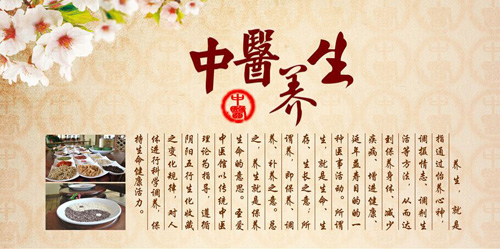 中醫养生
中醫
养生，就是
指通过怡养心神，
调摄情志、调剂生
活等方法，从而达
到保养身体、减少
疾病、增进健康、
延年益寿目的的一
种医事活动。所谓
生，就是生命、生
存、生长之意；所
谓养，即保养、调
养、补养之意。总
之，养生就是保养
生命的意思。圣爱
中医馆以传统中医
理论为指导，遵循
阴阳五行生化收藏
之变化规律，对人
体进行科学调养、保
持生命健康活力。